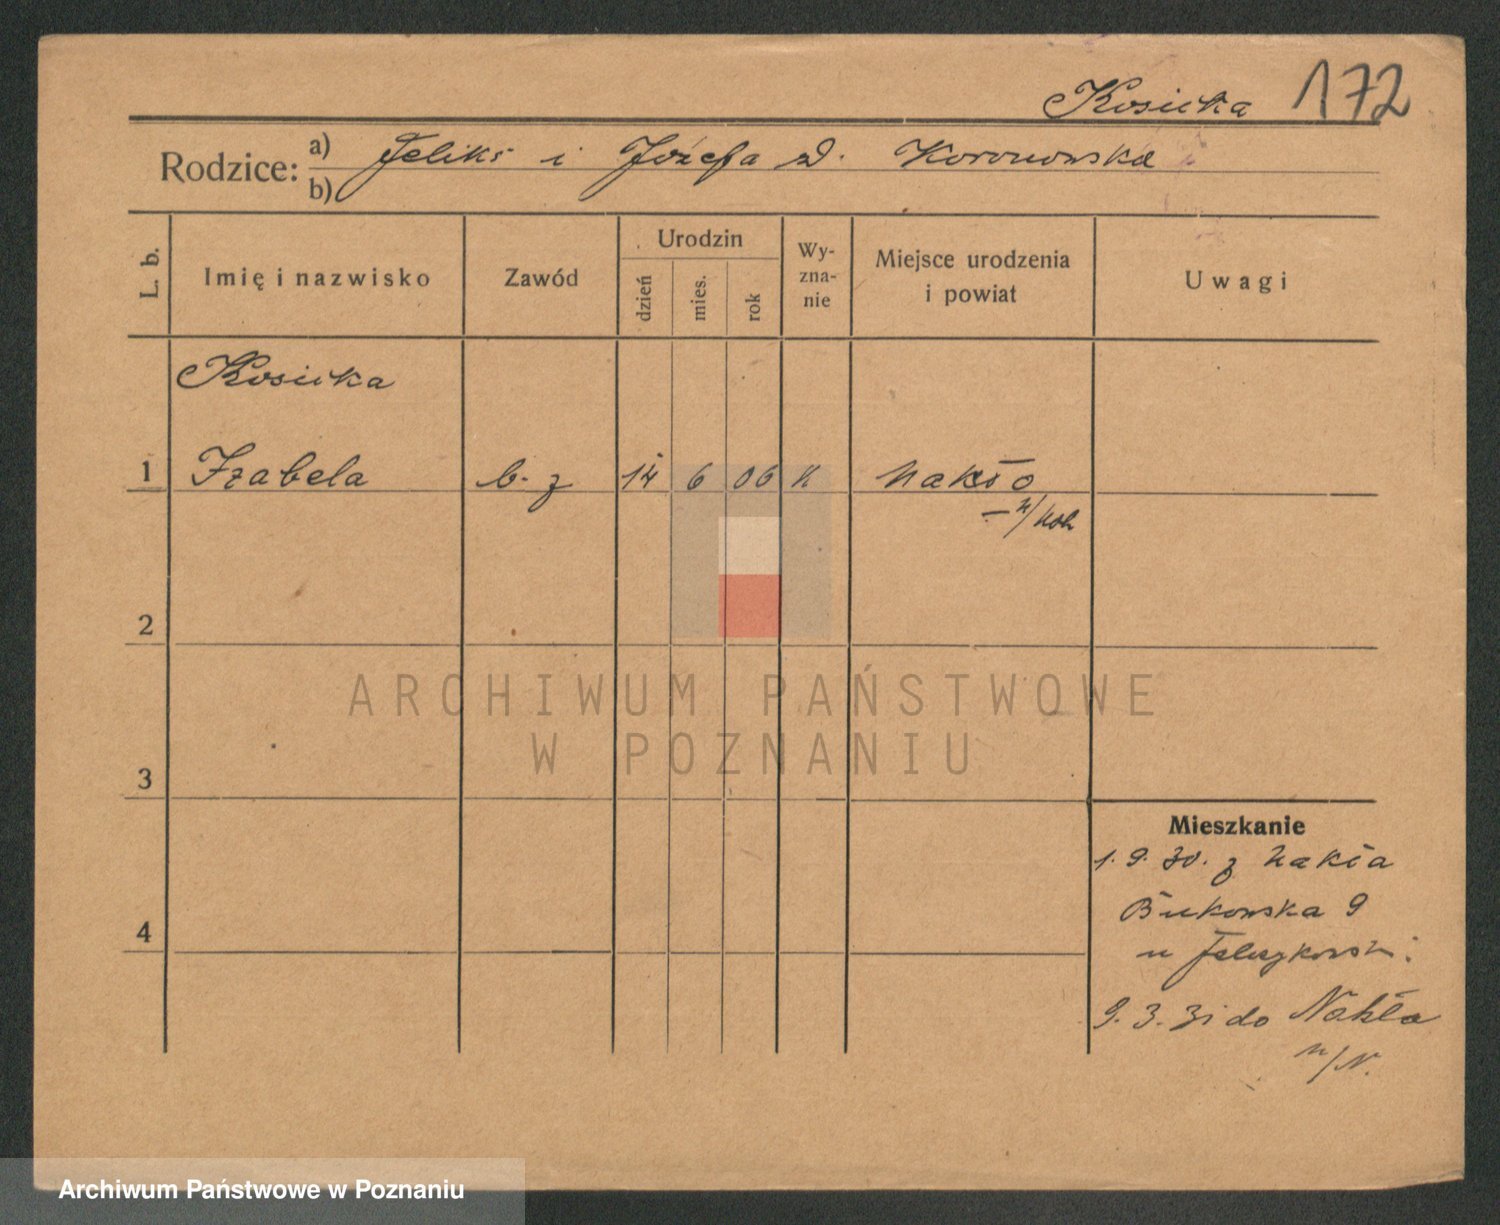 Kosicka 172
Rodzice: a) Feliks i Józefa d. Koronowska
b)
L. b. Imię i nazwisko Zawód Urodzin dzień mies. rok Wy-zna-nie Miejsce urodzenia i powiat Uwagi
Kosicka
1 Izabela b. z 14 6 06 k Nakło
n/Not
2
3
4
Mieszkanie
1. 9. 30. z Nakła
Bukowska 9
u
9. 3. 31 do Nakła
n/N.
ARCHIWUM PAŃSTWOWE
W POZNANIU
Archiwum Państwowe w Poznaniu